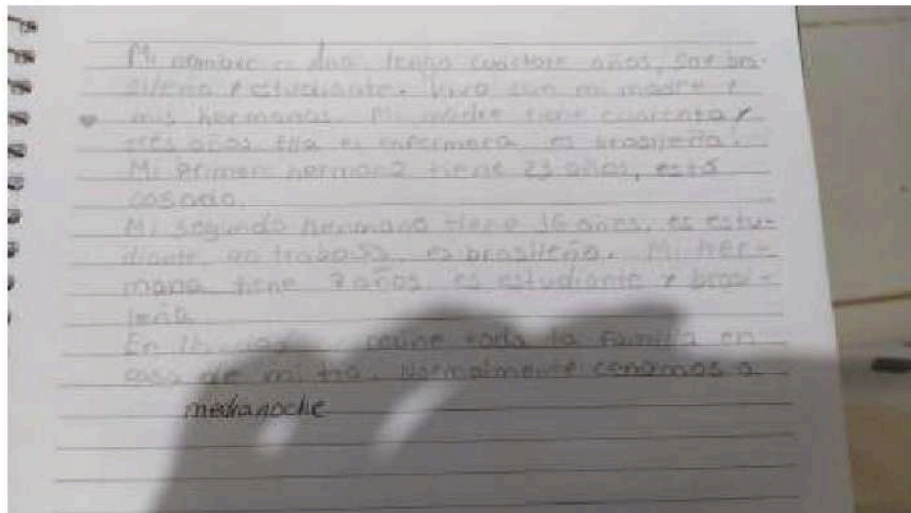 Mi nombre es Ana, tengo catorce años, soy bra-
sileña y estudiante. Vivo con mi madre y
mis hermanos. Mi madre tiene cuarenta y
tres años ella es enfermera es brasileña.
Mi primer hermano tiene 23 años, está
casado.
Mi segundo hermano tiene 16 años, es estu-
diante, no trabaja, es brasileño. Mi her-
mana tiene 7 años es estudiante y brasi-
leña.
En reúne toda la familia en
casa de mi tia. Normalmente cenamos a
medianoche